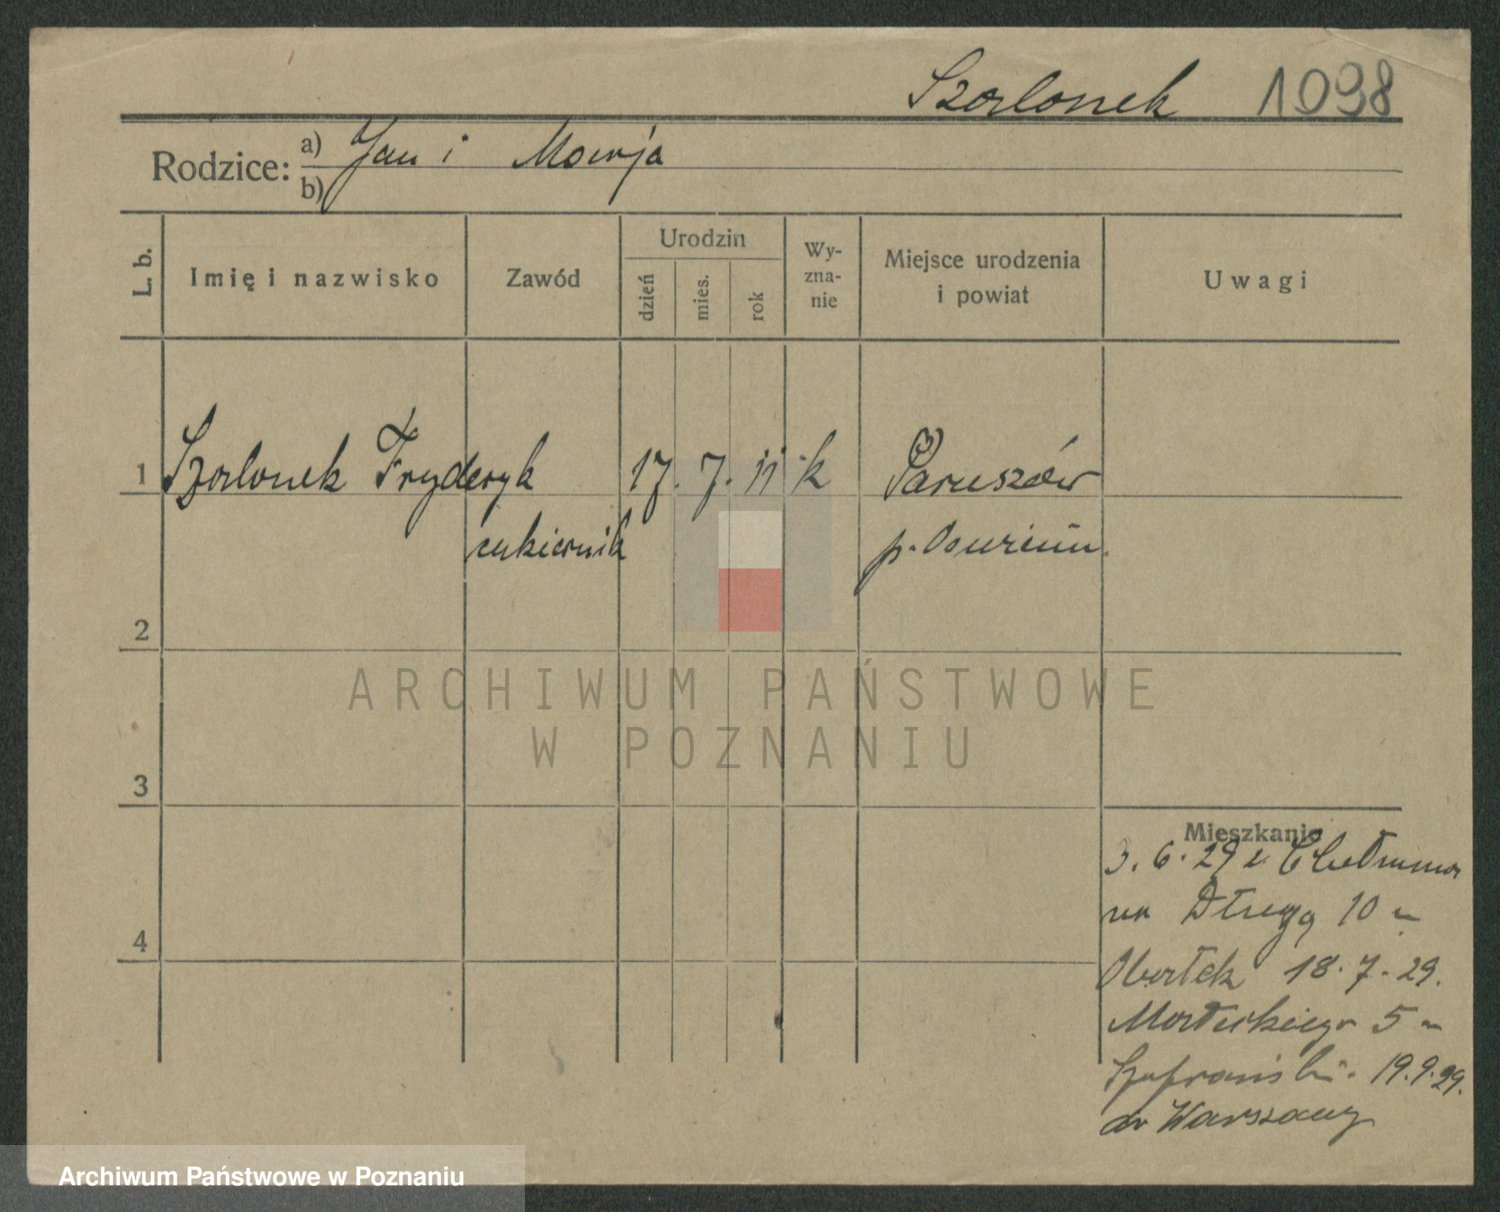 Szalonek 1098
Rodzice: a) Jan i Marja
b)
L. b.
Imię i nazwisko
Zawód
Urodzin
dzień
mies.
rok
Wy-
zna-
nie
Miejsce urodzenia
i powiat
Uwagi
1 Szalonek Fryderyk 17. 7. 11 k Paruszów
cukiernik p.
2
ARCHIWUM PAŃSTWOWE
W POZNANIU
3
Mieszkanie
3. 6. 29 z Chełmna
na Długą 10 u
18. 7. 29.
Małeckiego 5 u
Szafrański. 19.9.29.
do Warszawy
4
Archiwum Państwowe w Poznaniu